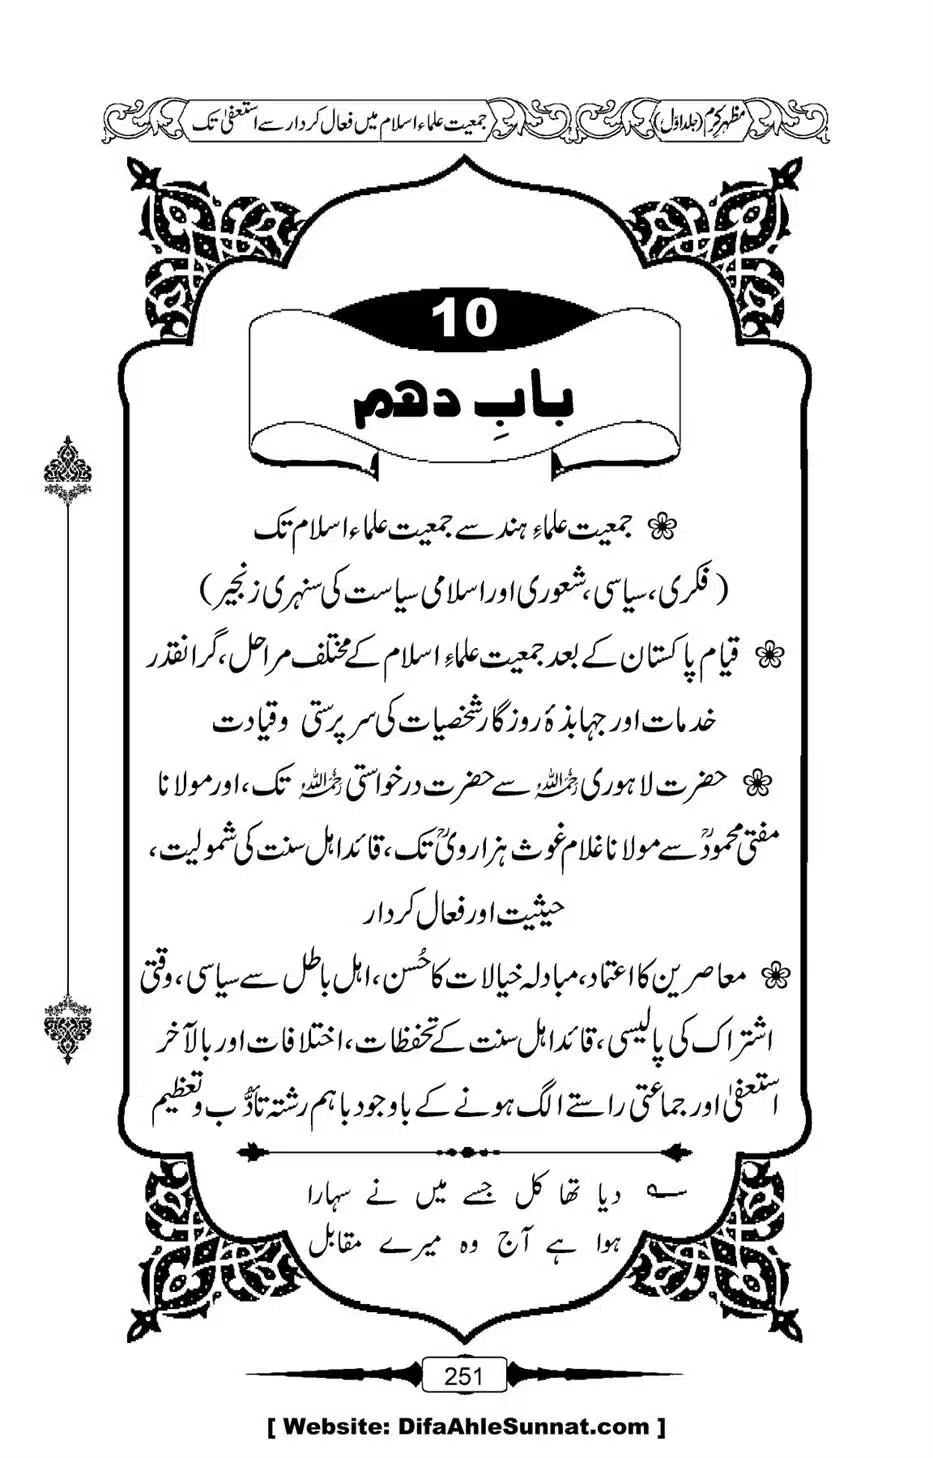 مظہرِ کرم (جلد اوّل)
جمعیت علماء اسلام میں فعال کردار سے استعفیٰ تک
10
بابِ دھم
جمعیت علماءِ ہند سے جمعیت علماء اسلام تک
(فکری، سیاسی، شعوری اور اسلامی سیاست کی سنہری زنجیر)
قیام پاکستان کے بعد جمعیت علماءِ اسلام کے مختلف مراحل، گرانقدر
خدمات اور جہابذۂ روزگار شخصیات کی سرپرستی و قیادت
حضرت لاہوری رحمہ اللہ سے حضرت درخواستی رحمہ اللہ تک، اور مولانا
مفتی محمودؒ سے مولانا غلام غوث ہزارویؒ تک، قائد اہل سنت کی شمولیت،
حیثیت اور فعال کردار
معاصرین کا اعتماد، مبادلہ خیالات کا حُسن، اہل باطل سے سیاسی، وقتی
اشتراک کی پالیسی، قائد اہل سنت کے تحفظات، اختلافات اور بالآخر
استعفیٰ اور جماعتی راستے الگ ہونے کے باوجود باہم رشتہ تأدُّب و تعظیم
دیا تھا کل جسے میں نے سہارا
ہوا ہے آج وہ میرے مقابل
251
[ Website: DifaAhleSunnat.com ]